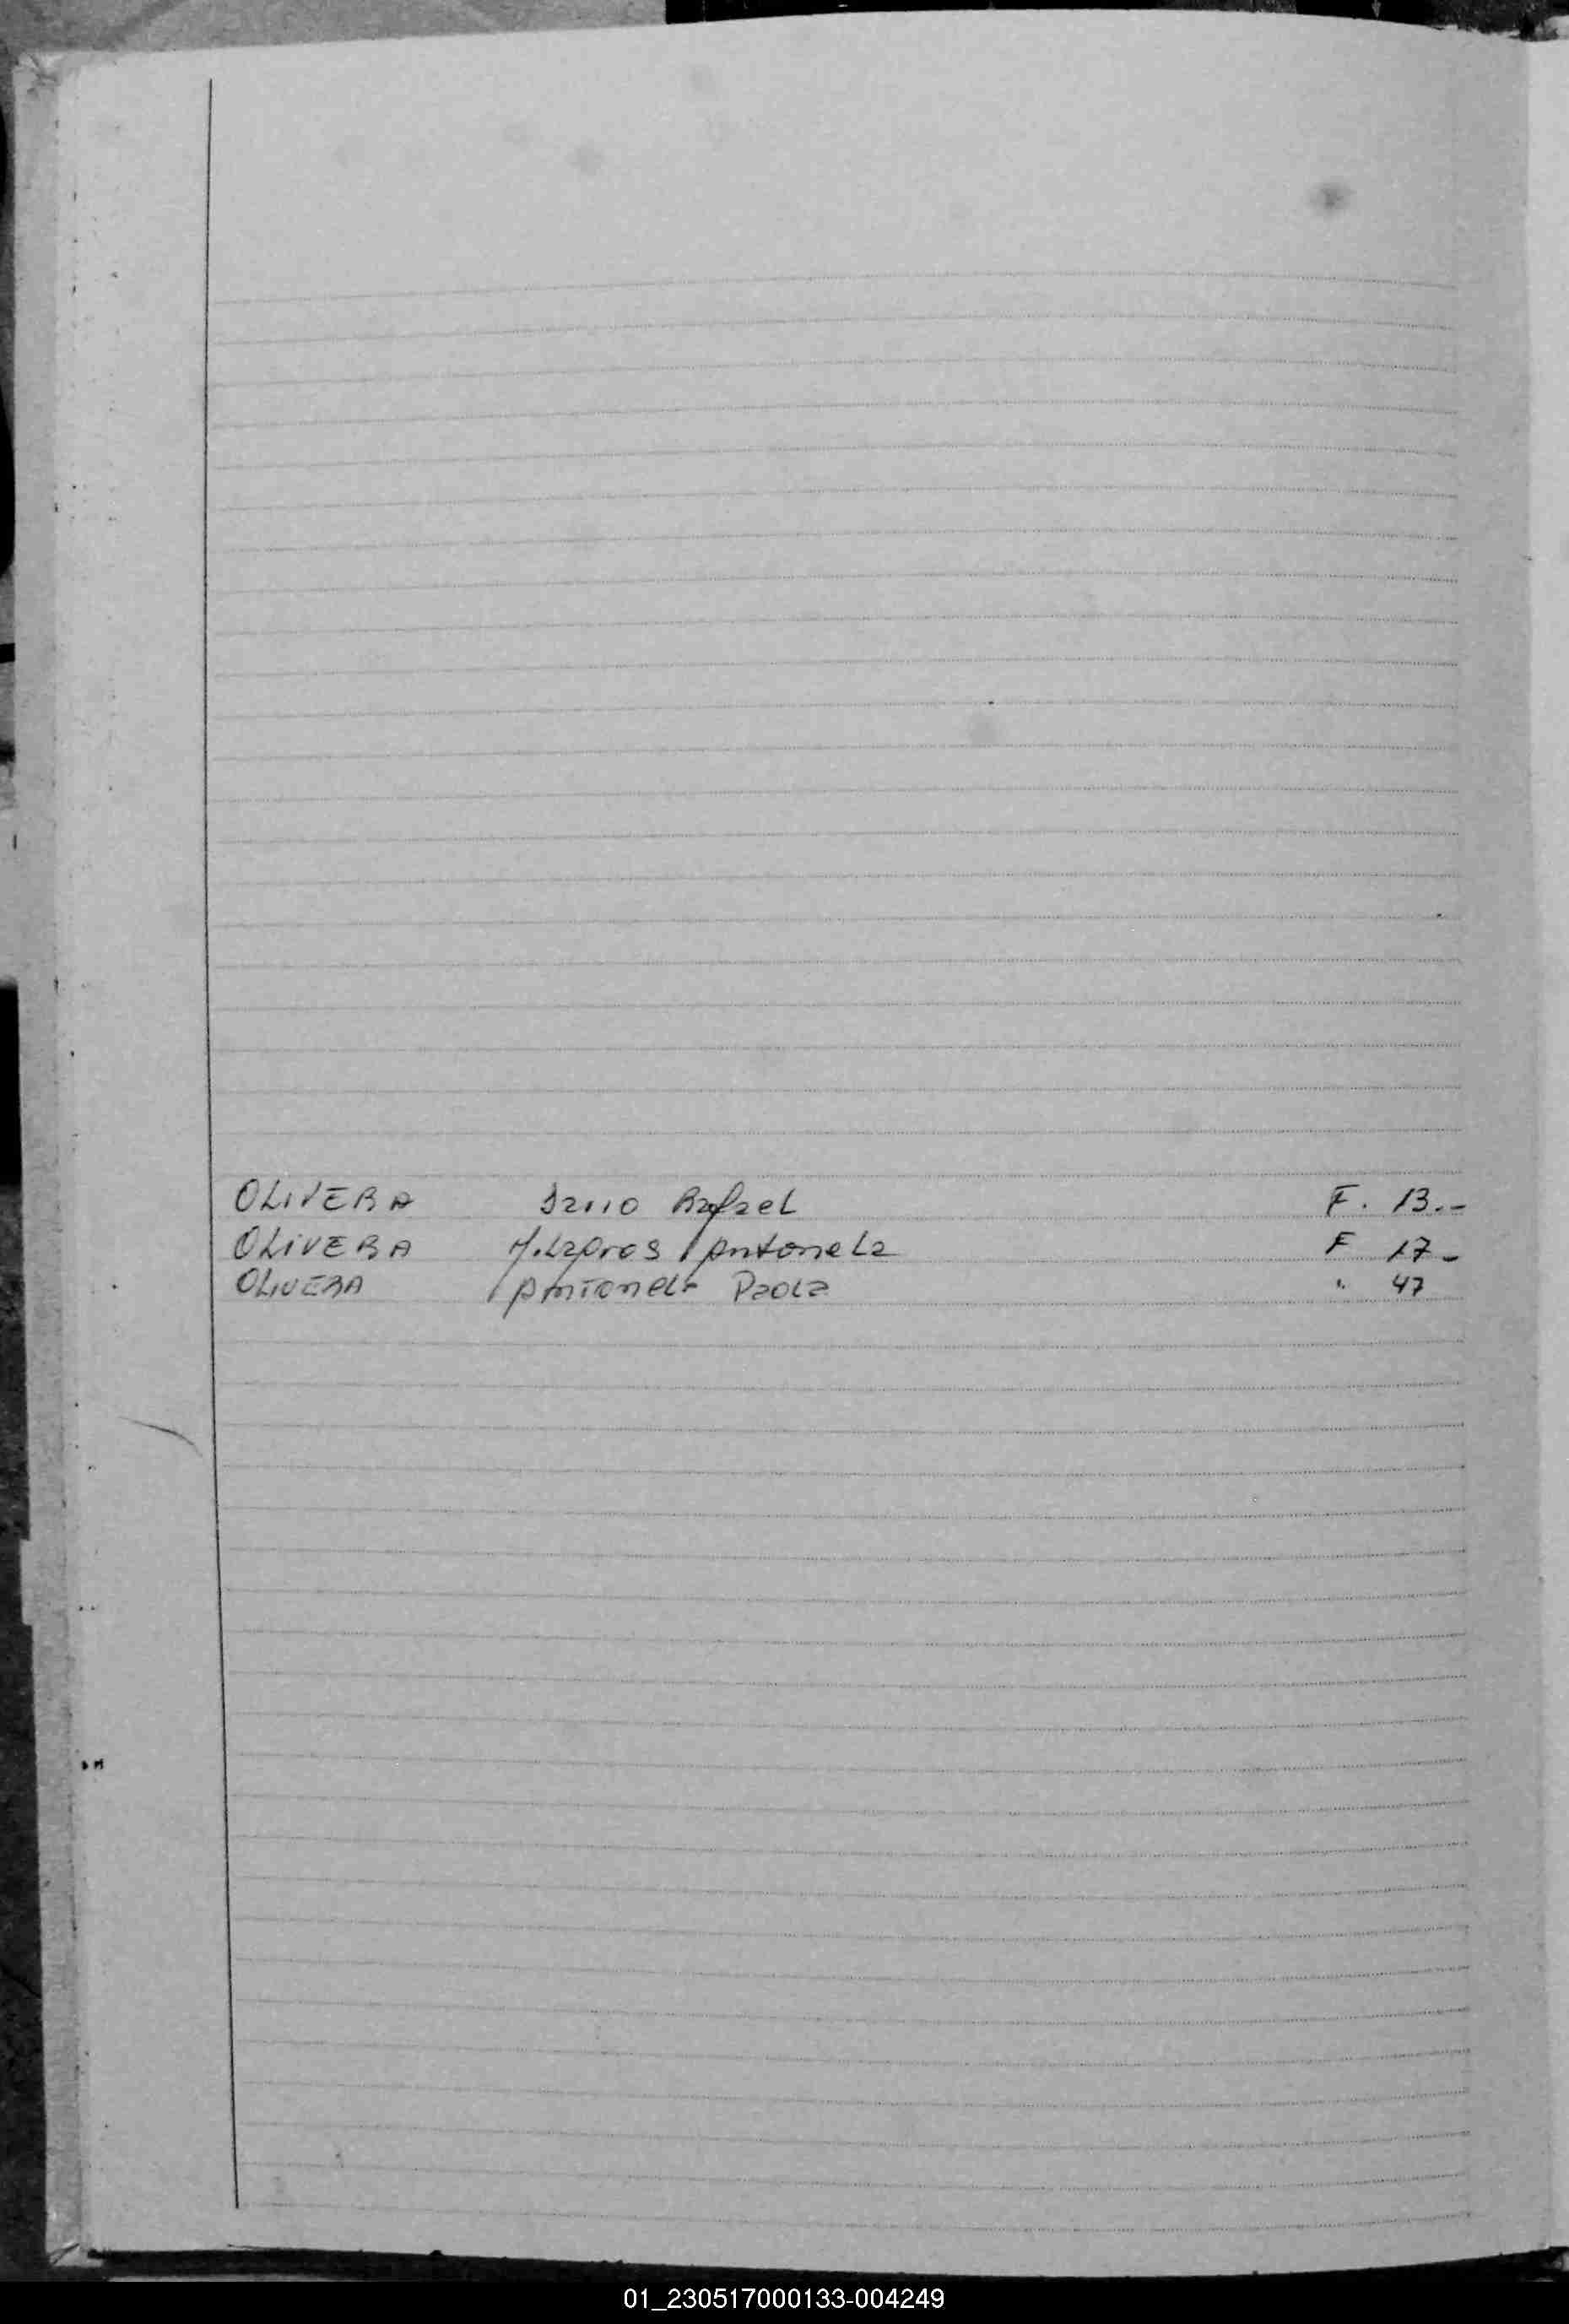 OLIVERA Dario Rafael F. 13.-
OLIVERA Milagros Antonela F 17-
OLIVERA Antonela Paola " 47
01_230517000133-004249